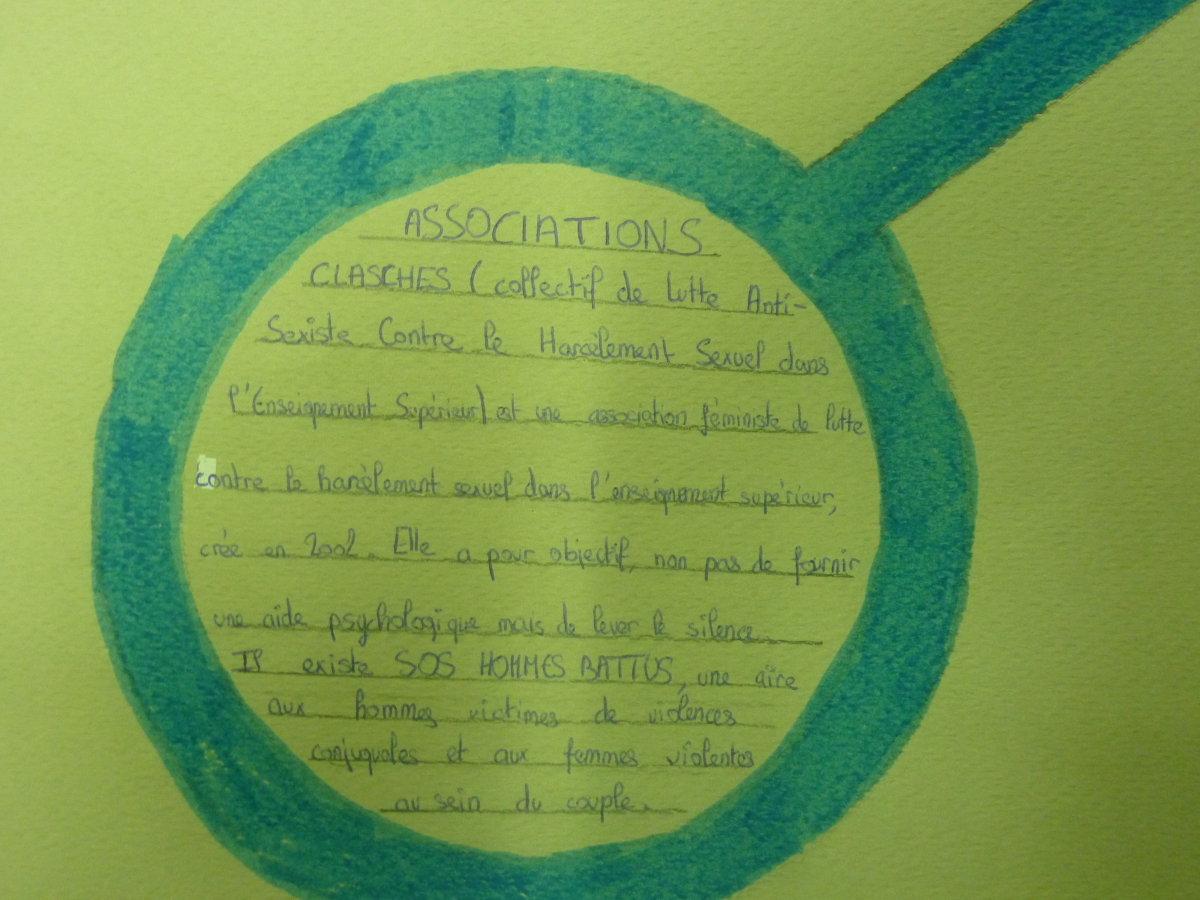 ASSOCIATIONS
CLASCHES (collectif de lutte Anti-
Sexiste Contre le Harcèlement Sexuel dans
l'Enseignement Supérieur) est une association féministe de lutte
contre le harcèlement sexuel dans l'enseignement supérieur,
crée en 2002. Elle a pour objectif, non pas de fournir
une aide psychologique mais de lever le silence.
Il existe SOS HOMMES BATTUS, une aire
aux hommes victimes de violences
conjuguales et aux femmes violentes
au sein du couple.